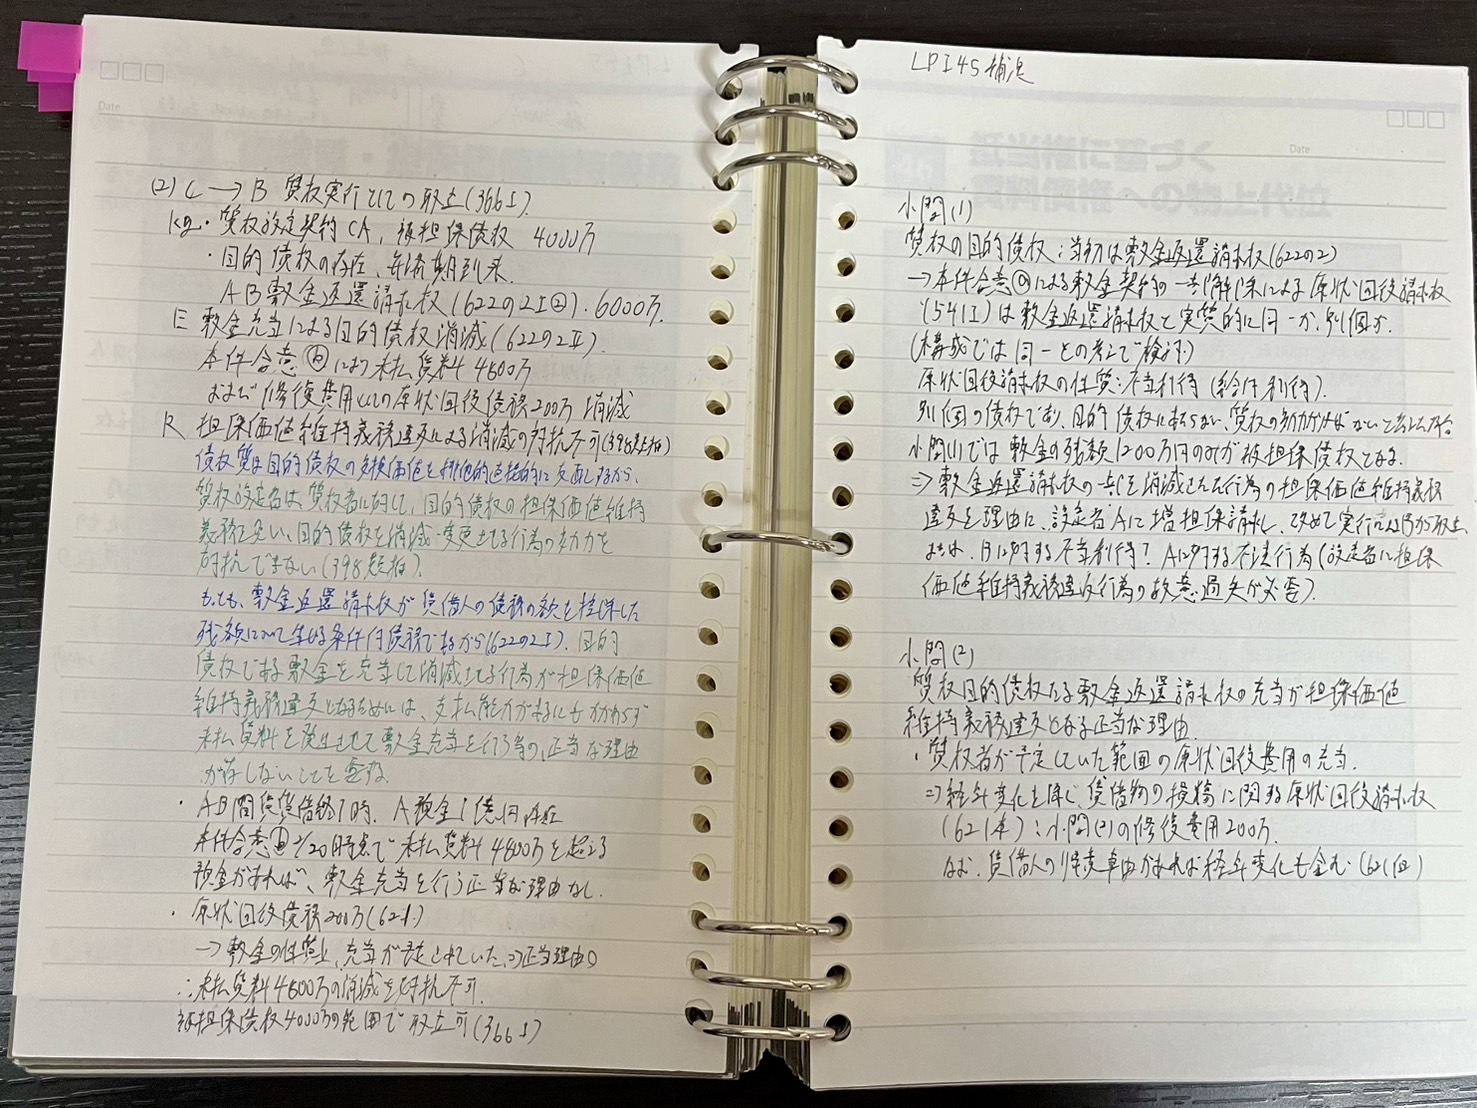 (2) C → B 質権実行としての取立(366Ⅰ).
Kg・質権設定契約CA、被担保債権 4000万
・目的債権の存在、弁済期到来
AB敷金返還請求权(622の2Ⅰ②). 6000万.
E 敷金充当による目的債权消滅(622の2Ⅱ).
本件合意ⓑにより未払賃料4800万
および修復費用としての原状回復債務200万 消滅
R 担保価値維持義務違反による消滅の対抗不可(398類推)
債权質は目的債权の交換価値を排他的直接的に支配するから、
質权設定者は、質权者に対して、目的債权の担保価値維持
義務を負い、目的債权を消滅・変更させる行為の効力を
対抗できない(398類推).
もっとも、敷金返還請求权が賃借人の債務の額を控除した
残額について生じる条件付債権であるから(622の2Ⅰ)、目的
債权である敷金を充当して消滅させる行為が担保価値
維持義務違反となるためには、支払能力があるにもかかわらず
未払賃料を発生させて敷金充当を行う等の、正当な理由
が存しないことを要する.
・AB間賃貸借終了時、A預金1億円存在
本件合意ⓑ 2/20時点で未払賃料4800万を超える
預金があれば、敷金充当を行う正当な理由なし.
・原状回復債務200万(621)
→敷金の性質上、充当が予定されていた⇒正当理由○
∴未払賃料4800万の消滅を対抗不可.
被担保債权4000万の範囲で取立可(366Ⅰ)
LPⅠ45 補足
Date
Date
小問(1)
質权の目的債权:当初は敷金返還請求权(622の2)
→本件合意ⓐによる敷金契約の一部解除による原状回復請求权
(545Ⅰ)は敷金返還請求权と実質的に同一か、別個か.
(構成では同一との考えで検討)
原状回復請求权の性質:不当利得(給付利得).
別個の債权であり、目的債权にあたらない、質权の効力が及ばないと考えた場合
小問(1)では敷金の残額1200万円のみが被担保債权となる.
⇒敷金返還請求权の一部を消滅させた行為の担保価値維持義務
違反を理由に、設定者Aに増担保請求し、改めて実行
または、Bに対する不当利得? Aに対する不法行為(設定者に担保
価値維持義務違反行為の故意過失が必要).
小問(2)
質权目的債权たる敷金返還請求权の充当が担保価値
維持義務違反となる正当な理由.
・質权者が予定していた範囲の原状回復費用の充当.
⇒経年変化を除く賃借物の損傷に関する原状回復請求权
(621本):小問(2)の修復費用200万.
なお、賃借人の帰責事由があれば経年変化も含む(621但)